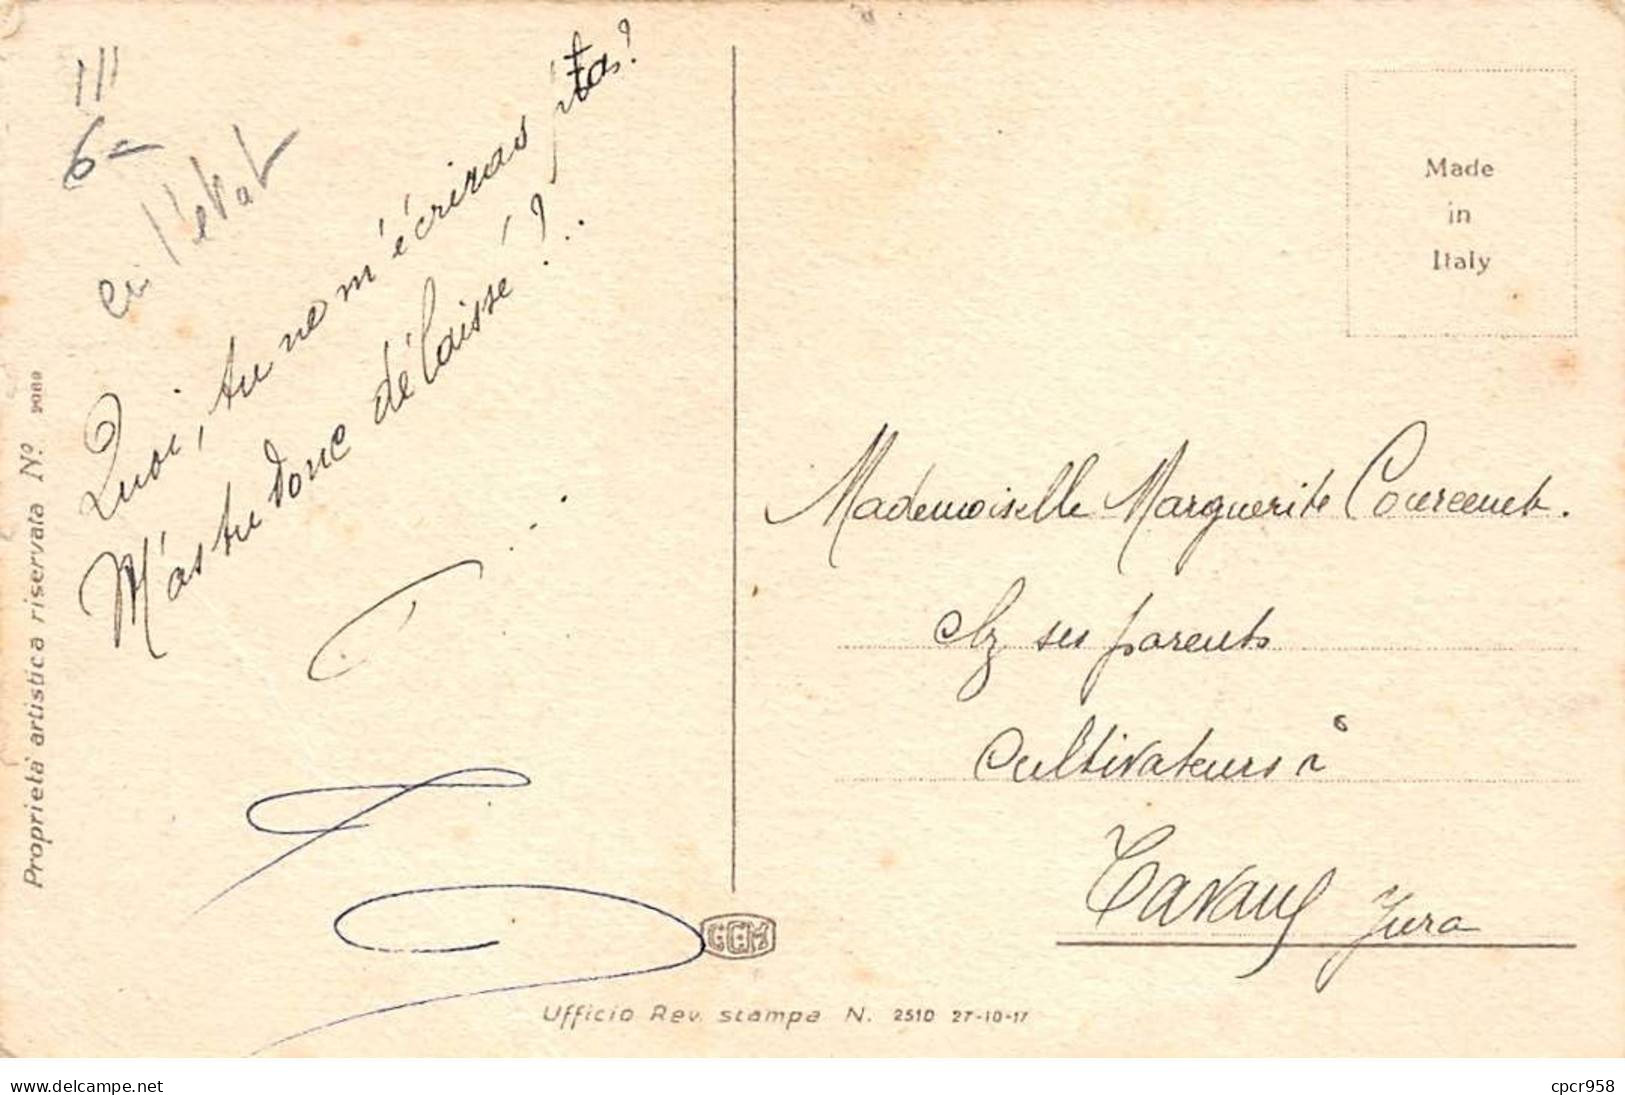 III
6-
en l'état
Quoi, tu ne m'écriras pas?
M'as tu donc délaissé?..
Proprietà artistica riservata Nº.
Made
in
Italy
Mademoiselle Marguerite
chz ses parents
Cultivateurs à
Tavaux Jura
GCM
Ufficio Rev. stampa N. 2510 27-10-17
www.delcampe.net
cpcr958